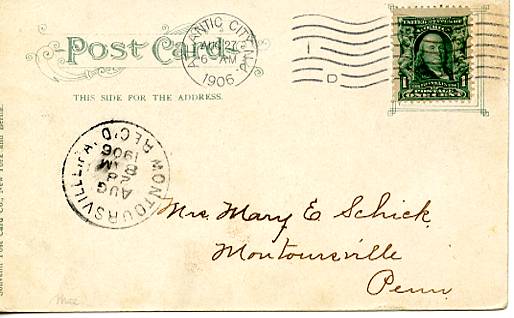 Post Card
THIS SIDE FOR THE ADDRESS.
ATLANTIC CITY, N.J.
AUG 27
6 AM
1906
I
D
1 1
POSTAGE
ONE CENT
MONTOURSVILLE, PA.
AUG
28
8 AM
1906
REC'D
Mrs. Mary E. Schick
Montoursville
Penn
Souvenir Post Card Co., New York and Berlin.